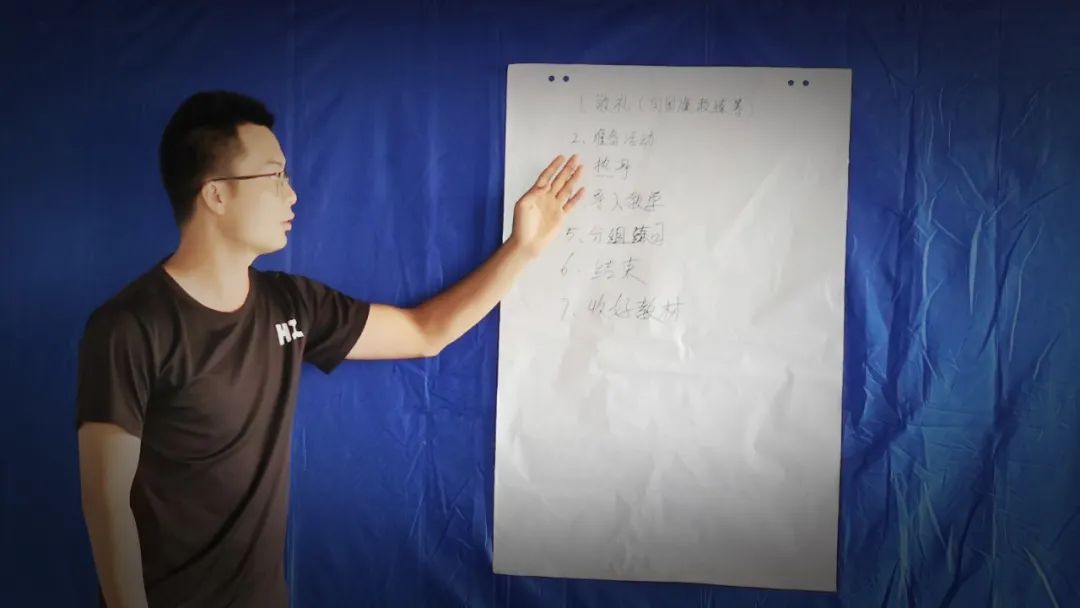 HI
1. 敬礼（向国旗教练等）
2、准备活动
热身
导入教学
5、分组练习
6、结束
7、收好教材